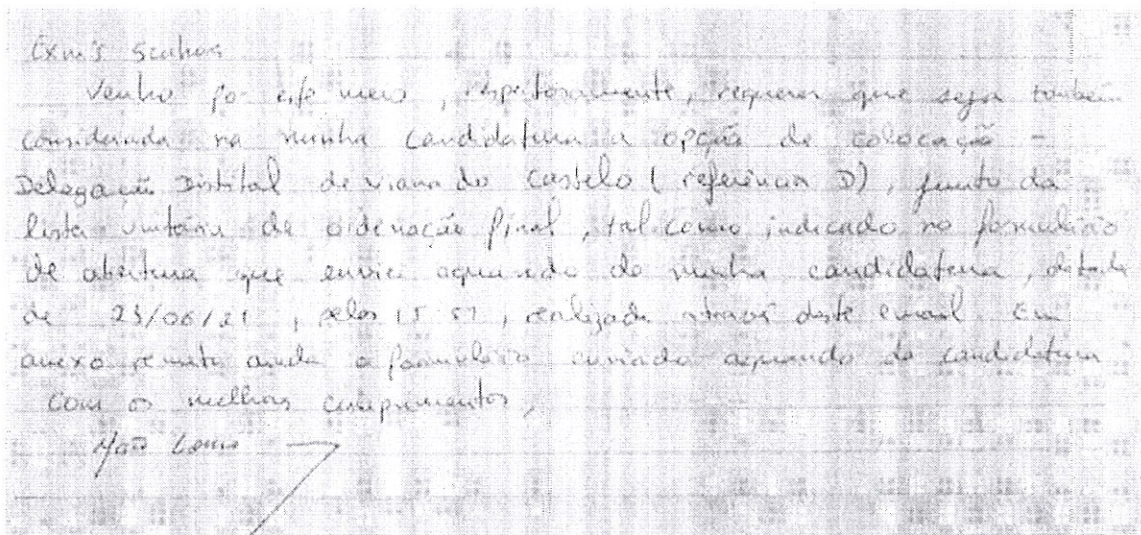 Exm's Senhores
Venho por este meio, respeitosamente, requerer que seja também
considerada na minha candidatura a opção de colocação -
Delegação Distrital de Viana do Castelo (referência D), junto da
lista unitária de ordenação final, tal como indicado no formulário
de abertura que enviei aquando da minha candidatura, datada
de 23/06/21, pelas 15:51, realizada através deste email. Em
anexo remeto ainda o formulário enviado aquando da candidatura
Com os melhores cumprimentos,